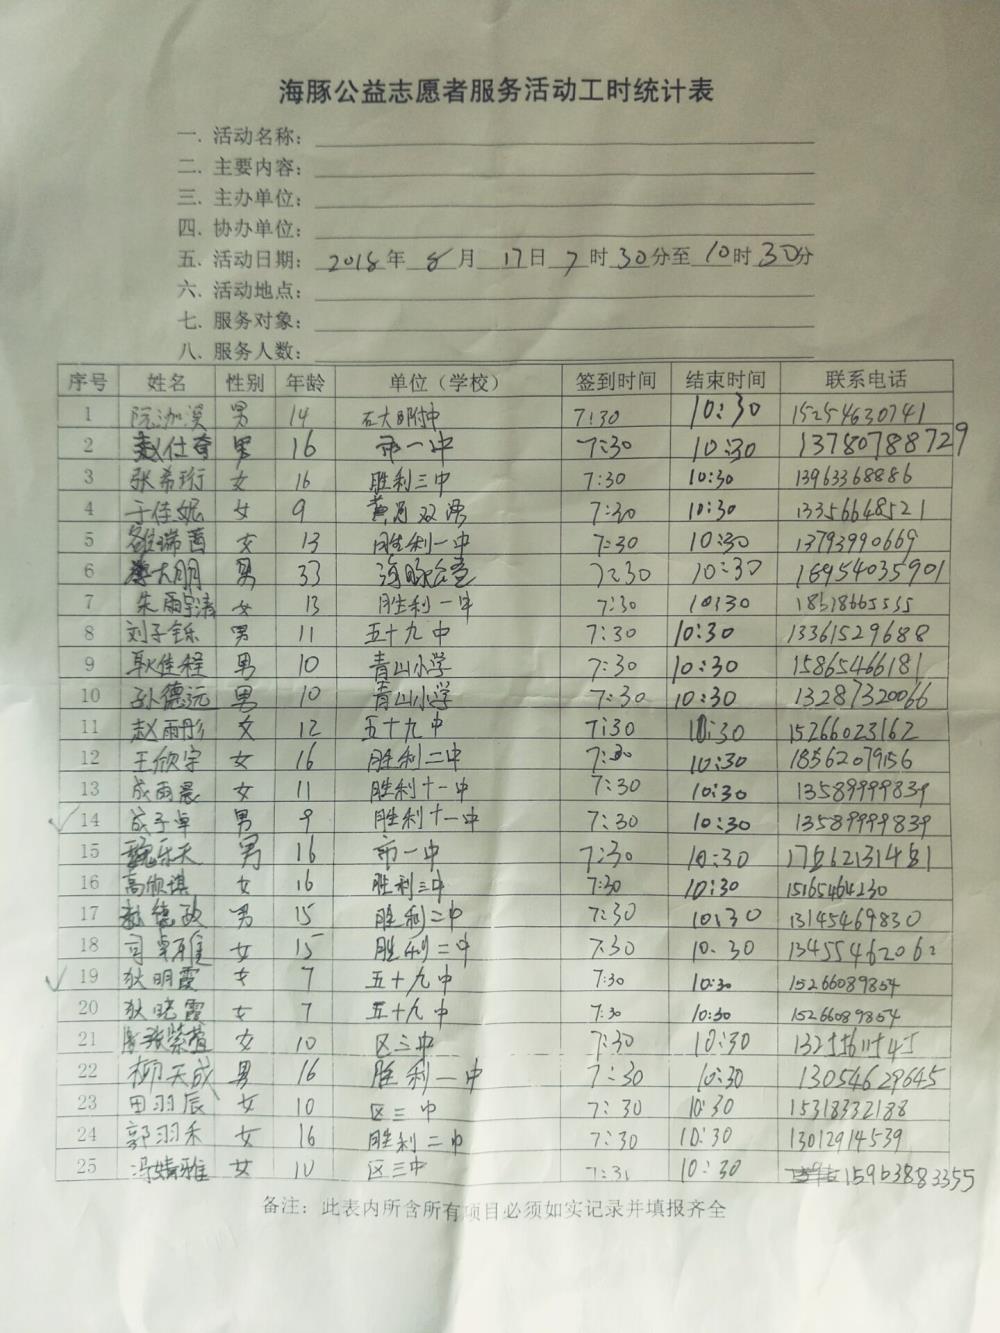 海豚公益志愿者服务活动工时统计表
一. 活动名称:
二. 主要内容:
三. 主办单位:
四. 协办单位:
五. 活动日期: 2018年 8月 17日 7时30分至10时30分
六. 活动地点:
七. 服务对象:
八. 服务人数:
序号 姓名 性别 年龄 单位（学校） 签到时间 结束时间 联系电话
1 男 14 石大附中 7:30 10:30 15254630741
2 赵仕奇 男 16 市一中 7:30 10:30 13780788729
3 张希珩 女 16 胜利三中 7:30 10:30 13963368886
4 于佳妮 女 9 双语 7:30 10:30 13356648521
5 瑞茜 女 13 胜利一中 7:30 10:30 13793990669
6 大朋 男 33 海豚公益 7:30 10:30 16954035901
7 朱雨清 女 13 胜利一中 7:30 10:30
8 刘子铄 男 11 五十九中 7:30 10:30 13361529688
9 耿佳程 男 10 青山小学 7:30 10:30 15865466181
10 孙德沅 男 10 青山小学 7:30 10:30 13287320066
11 赵雨彤 女 12 五十九中 7:30 10:30 15266023162
12 王欣宇 女 16 胜利二中 7:30 10:30 18562079156
13 成雨晨 女 11 胜利十一中 7:30 10:30 13589999839
14 成子卓 男 9 胜利十一中 7:30 10:30 13589999839
15 魏乐天 男 16 市一中 7:30 10:30
16 高欣琪 女 16 胜利三中 7:30 10:30 15165464230
17 赵德政 男 15 胜利二中 7:30 10:30 13145469830
18 司卓雅 女 15 胜利二中 7:30 10:30 13455462062
19 狄明霞 女 7 五十九中 7:30 10:30 15266089854
20 狄晓霞 女 7 五十九中 7:30 10:30 15266089854
21 女 10 区三中 7:30 10:30
22 柳天成 男 16 胜利一中 7:30 10:30 13054629645
23 田羽辰 女 10 区三中 7:30 10:30 15318332188
24 郭羽禾 女 16 胜利二中 7:30 10:30 13012914539
25 冯婧雅 女 10 区三中 7:31 10:30 15963883355
备注: 此表内所含所有项目必须如实记录并填报齐全